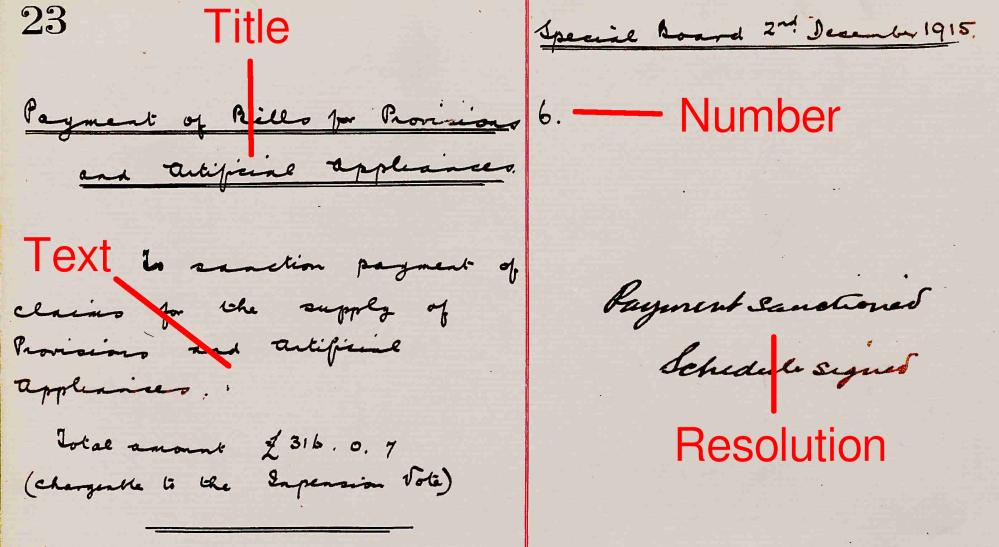 23
Title
Payment of Bills for Provisions
and Artificial Appliances.
Text
To sanction payment of
claims for the supply of
Provisions and Artificial
Appliances.
Total amount £316. 0. 7
(chargeable to the Inpension Vote)
Special Board 2nd December 1915.
6.
Number
Payment sanctioned
Schedule signed
Resolution